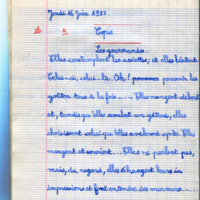 Jeudi 16 Juin 1988.
Copie
Les gourmandes.
Elles contemplent les assiettes, et elles hésitent
Celui-ci, celui-là. Oh! pouvoir les
goûter tous à la fois..... Elles mangent debout
et, tandis qu'elles avalent un gâteau, elles
choisissent celui qu'elles avaleront après. Elles
mangent et sourient... Elles ne parlent pas,
mais, du regard, elles échangent leurs im
pressions et font entendre des murmures....